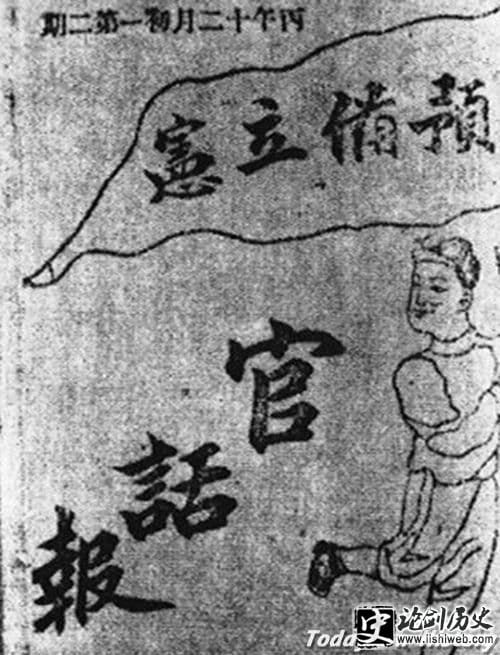 丙午十二月初一第二期
預備立憲
官話報
史 论剑历史
www.lishiweb.com